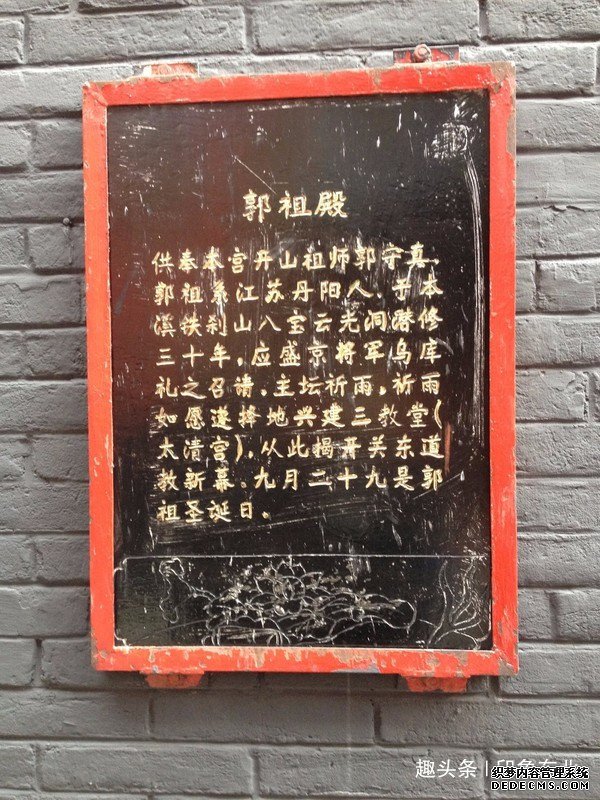 郭祖殿
供奉本宫开山祖师郭守真.
郭祖系江苏丹阳人.于本
溪铁刹山八宝云光洞潜修
三十年.应盛京将军乌库
礼之召请.主坛祈雨.祈雨
如愿遂择地兴建三教堂(
太清宫).从此揭开关东道
教新幕.九月二十九是郭
祖圣诞日.
趣头条 | 印象东北
织梦内容管理系统
DEDECMS.COM